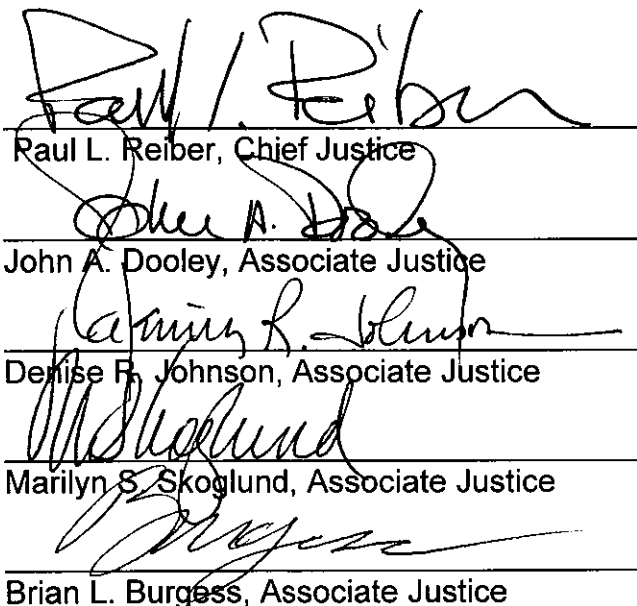 Paul L. Reiber
Paul L. Reiber, Chief Justice
John A. Dooley
John A. Dooley, Associate Justice
R. Johnson
Denise R. Johnson, Associate Justice
MSkoglund
Marilyn S. Skoglund, Associate Justice
Burgess
Brian L. Burgess, Associate Justice